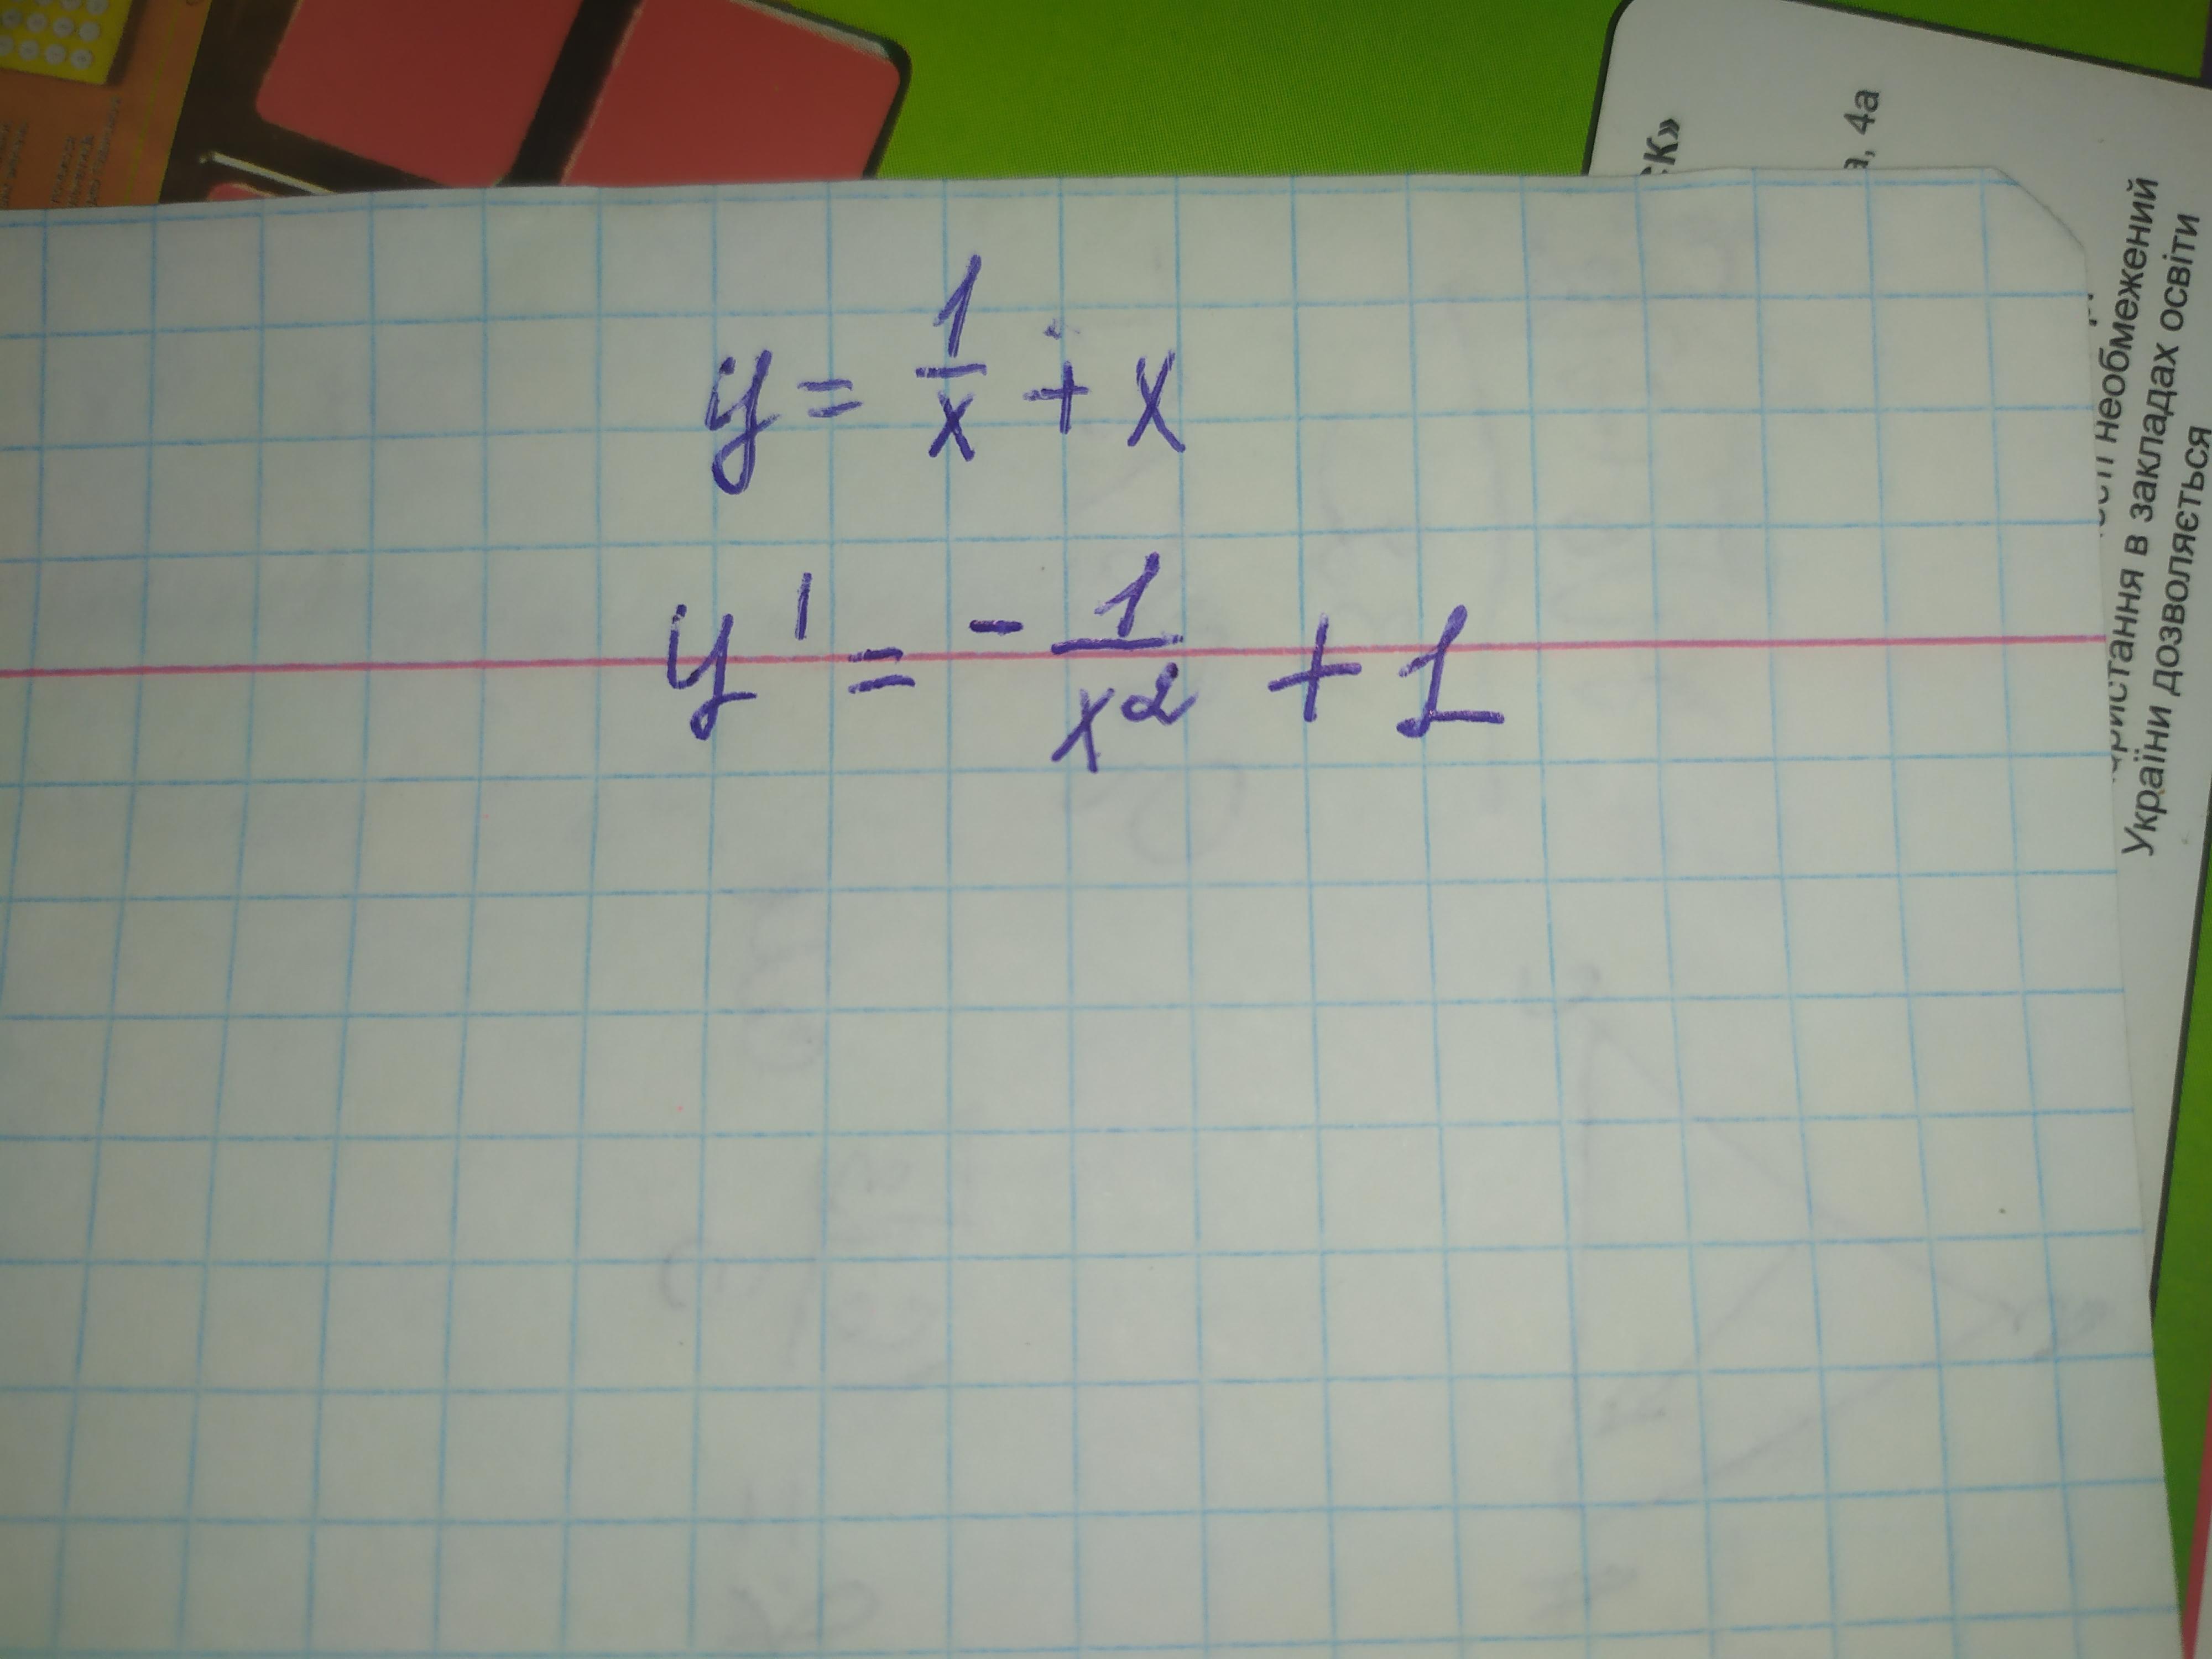 y = 1/x + x
y' = - 1/x² + 1
СК»
а, 4а
необмежений
в закладах освіти
України дозволяється